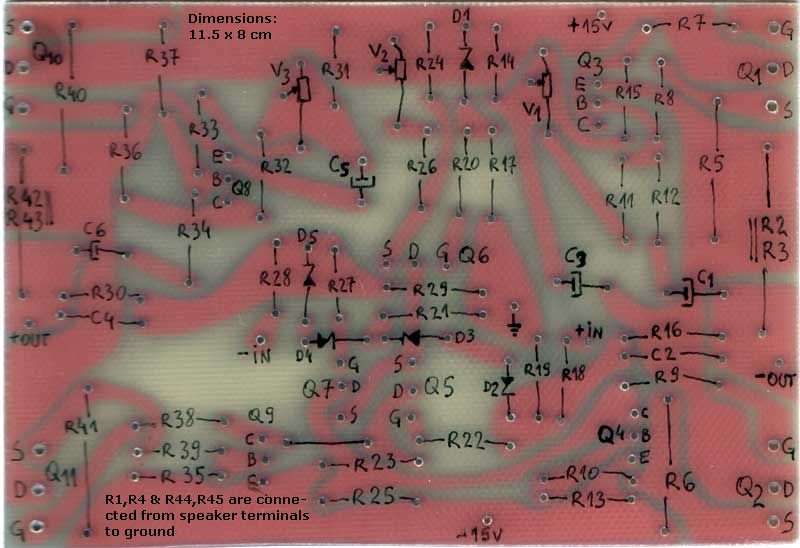 Dimensions:
11.5 x 8 cm
S
Q10
D
G
R37
R40
R36
R33
E
B
Q8
C
R32
R34
R42
R43
C6
R30
C4
+OUT
V3
R31
V2
R24
D1
R14
V1
+15V
Q3
E
B
C
R15
R8
R7
G
Q1
D
S
R5
R11
R12
R2
R3
C5
R26
R20
R17
D5
R28
R27
S
D
G
Q6
R29
R21
C3
C1
-iN
D4
D3
+iN
R16
C2
R9
-OUT
Q7
G
D
S
S
D
G
Q5
D2
R19
R18
R41
R38
R39
R35
Q9
C
B
E
R22
R23
R25
Q4
C
B
E
R10
R13
R6
G
Q2
D
S
S
Q11
D
G
+15V
R1,R4 & R44,R45 are conne-
cted from speaker terminals
to ground